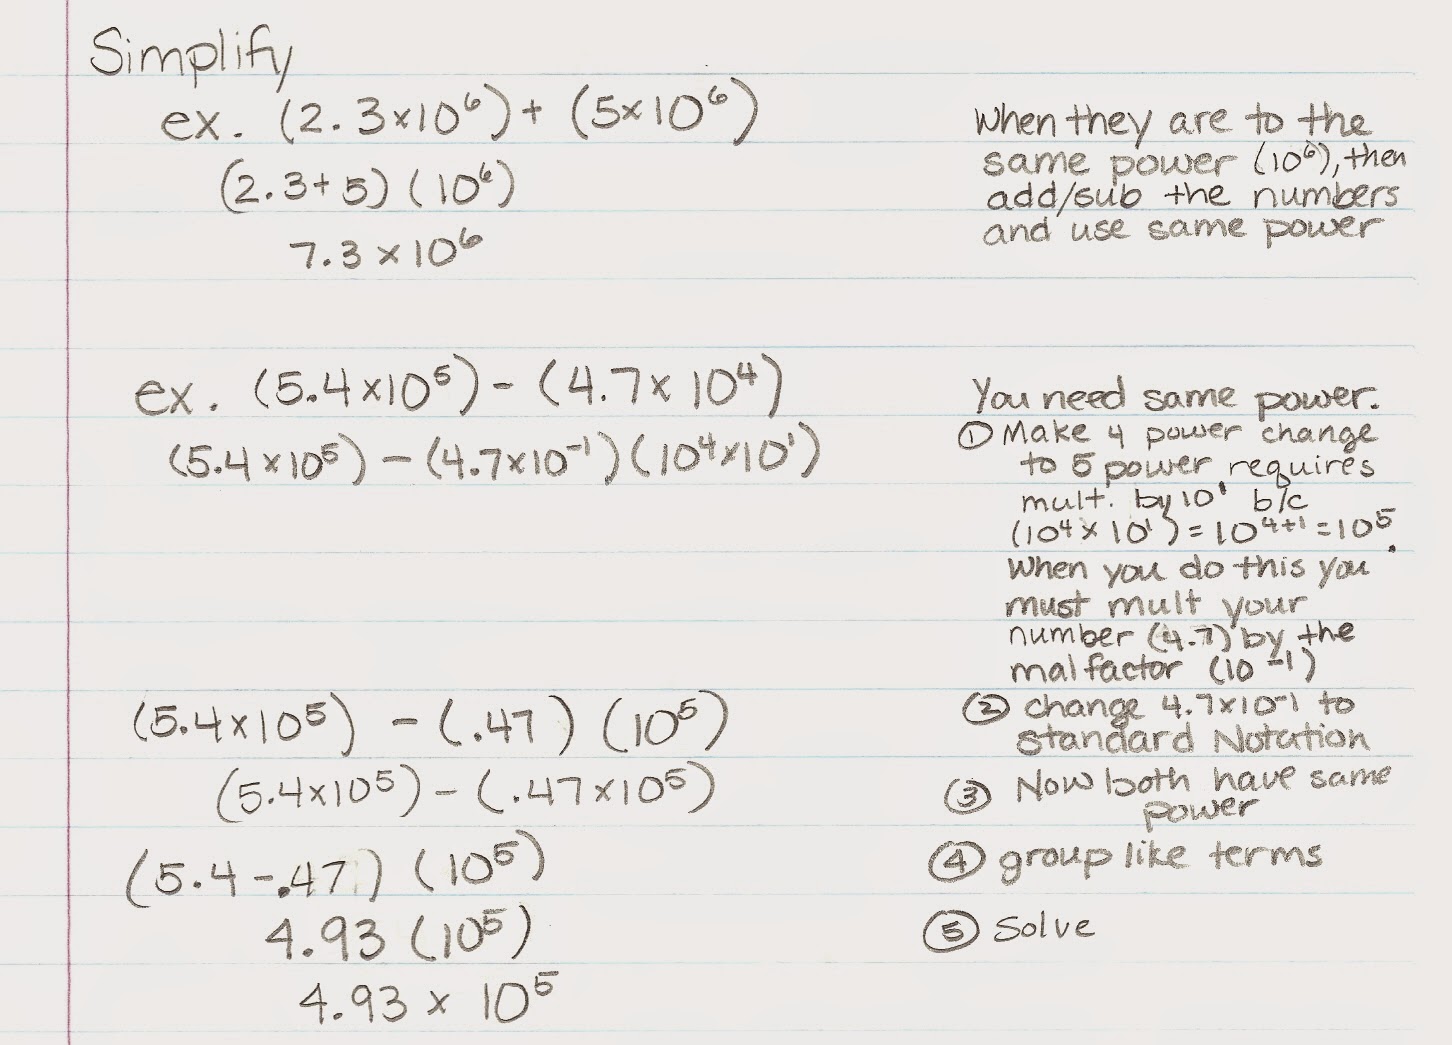 Simplify
ex. (2.3x10⁶) + (5x10⁶)
(2.3+5) (10⁶)
7.3 x 10⁶
When they are to the
same power (10⁶), then
add/sub the numbers
and use same power
ex. (5.4x10⁵) - (4.7x 10⁴)
(5.4x10⁵) - (4.7x10⁻¹) (10⁴x10¹)
You need same power.
① Make 4 power change
to 5 power requires
mult. by 10¹ b/c
(10⁴x 10¹) = 10⁴⁺¹ = 10⁵.
When you do this you
must mult your
number (4.7) by the
mal factor (10⁻¹)
(5.4x10⁵) - (.47) (10⁵)
② change 4.7x10⁻¹ to
standard Notation
(5.4x10⁵) - (.47x10⁵)
③ Now both have same
power
(5.4-.47) (10⁵)
④ group like terms
4.93 (10⁵)
⑤ Solve
4.93 x 10⁵